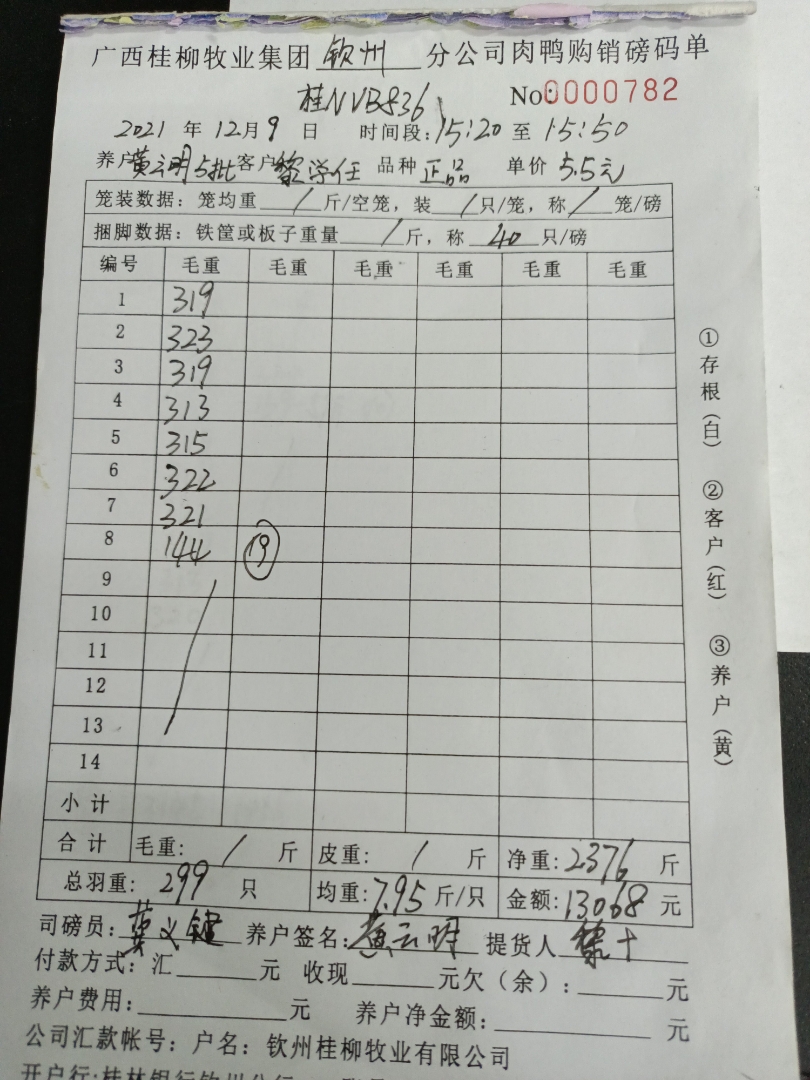 广西桂柳牧业集团 钦州 分公司肉鸭购销磅码单
桂NVB836 No:0000782
2021 年 12月 9 日 时间段:15:20 至 15:50
养户黄云明5批客户黎学任 品种 正品 单价 5.5元
笼装数据：笼均重 / 斤/空笼，装 / 只/笼，称 / 笼/磅
捆脚数据：铁筐或板子重量 / 斤，称 40 只/磅
编号 毛重 毛重 毛重 毛重 毛重 毛重
1 319
2 323
3 319
4 313
5 315
6 322
7 321
8 144 19
9
10
11
12
13
14
小计
合计 毛重： / 斤 皮重： / 斤 净重：2376 斤
总羽重：299 只 均重：7.95 斤/只 金额：13068 元
司磅员： 养户签名：黄云明 提货人 黎十
付款方式：汇 元 收现 元欠（余）： 元
养户费用： 元 养户净金额： 元
公司汇款帐号：户名：钦州桂柳牧业有限公司
开户行:桂林银行钦州分行
①存根(白) ②客户(红) ③养户(黄)